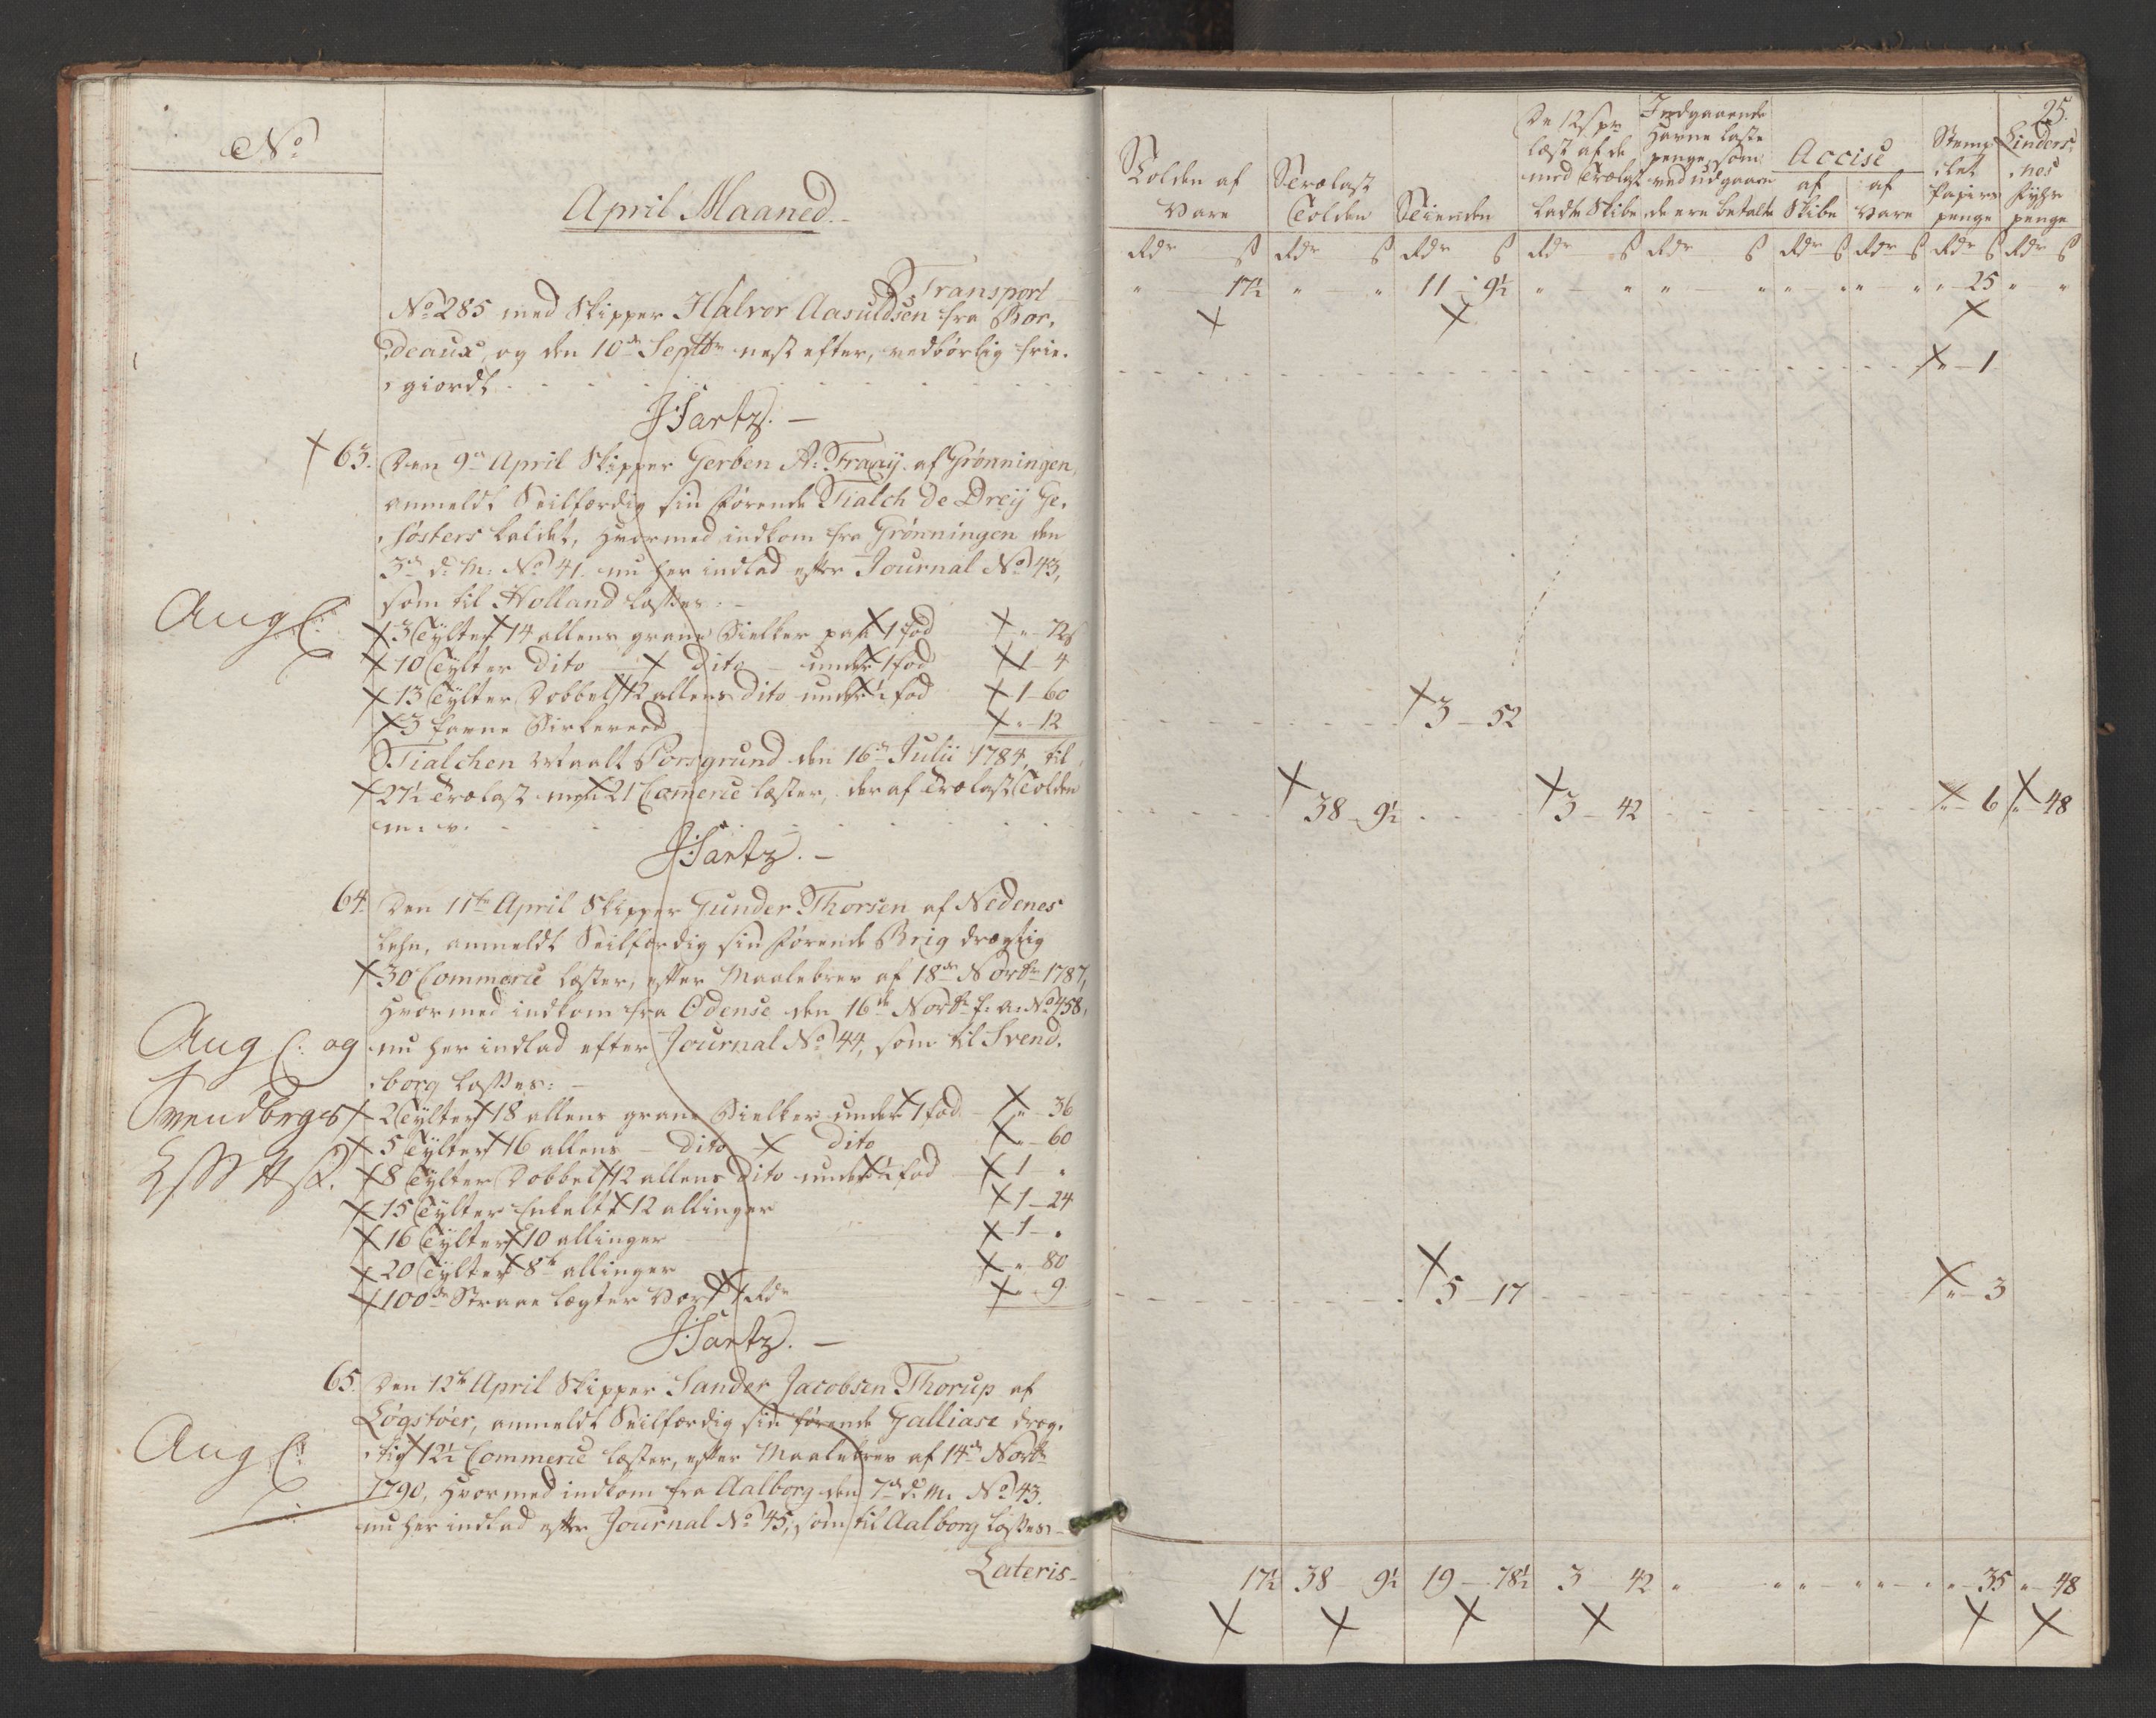 No
April Maaned.-
Transport
No 285 med Skipper Halvor Aasuldsen fra Bor,
deaux, og den 10de Septbr nest efter, vedbørlig frie,
giordt
JHartz.-
63. Den 9de April Skipper Gerben A: Fraaij af Grønningen,
anmeldt Seilfærdig sin førende Tialch De Dreij Ge,
søsters kaldet, hvormed indkom fra Grønningen den
3de d: M: No 41. nu her indlad efter Journal No 43,
Aug C:
som til Holland losses:-
3 Tylter 14 allens grane Bielker paa 1 fod " - 72 s
10 Tylter dito - dito - under 1 fod 1 - 4
13 Tylter Dobbelt 12 allens dito under ½ fod 1 - 60
3 favne Birkeveed " - 12
Tialchen maalt Porsgrund den 16de Julii 1784, til
27½ Trælast men 21 Commerce læster, der af Trælast Tolden
m. v.
JHartz.-
64. Den 11te April Skipper Gunder Thorsen af Nedenes
Lehn, anmeldt Seilfærdig sin førende Brig drægtig
30 Commerce læster, efter Maalebrev af 18de Novbr 1787,
hvormed indkom fra Odense den 16de Novbr f: a: No 458,
Aug C: og
nu her indlad efter Journal No 44, som til Svend,
borg losses:-
Svendborgs
2 Tylter 18 allens grane Bielker under 1 fod " - 36
5 Tylter 16 allens - dito - dito " - 60
8 Tylter Dobbelt 12 allens dito under ½ fod 1 "
15 Tylter Enkelte 12 allinger 1 - 24
16 Tylter 10 allinger 1 - "
20 Tylter 8te allinger " - 80
100de Straae lægter værd 1 Rdr " 9
JHartz.-
65. Den 12te April Skipper Sander Jacobsen Thorup af
Løgstøer, anmeldt Seilfærdig sin førende Galliase dræg,
Aug C:
tig 12½ Commerce læster, efter Maalebrev af 14de Novbr
1790, hvormed indkom fra Aalborg den 7de d: M: No 43.
nu her indlad efter Journal No 45, som til Aalborg losses-
Lateris-
25.
Tolden af Vare
Trælast Tolden
Tienden
De 12 s pr læst af de med Trælast ladte Skibe
Indgaaende Havne laste penge, som ved udgaaende ere betalte
Accise
af Skibe
af Vare
Stemplet Papiirs penge
Lindersnes Fyhr penge
Rdr s Rdr s Rdr s Rdr s Rdr s Rdr s Rdr s Rdr s Rdr s
" 17½ " " 11 - 9½ " " " " " " " " " 25 " "
" - 1
3 - 52
38 - 9½ 3 - 42 " - 6 " - 48
5 - 17 " - 3
17½ 38 - 9½ 19 - 78½ 3 - 42 " " " " " " " 35 " - 48